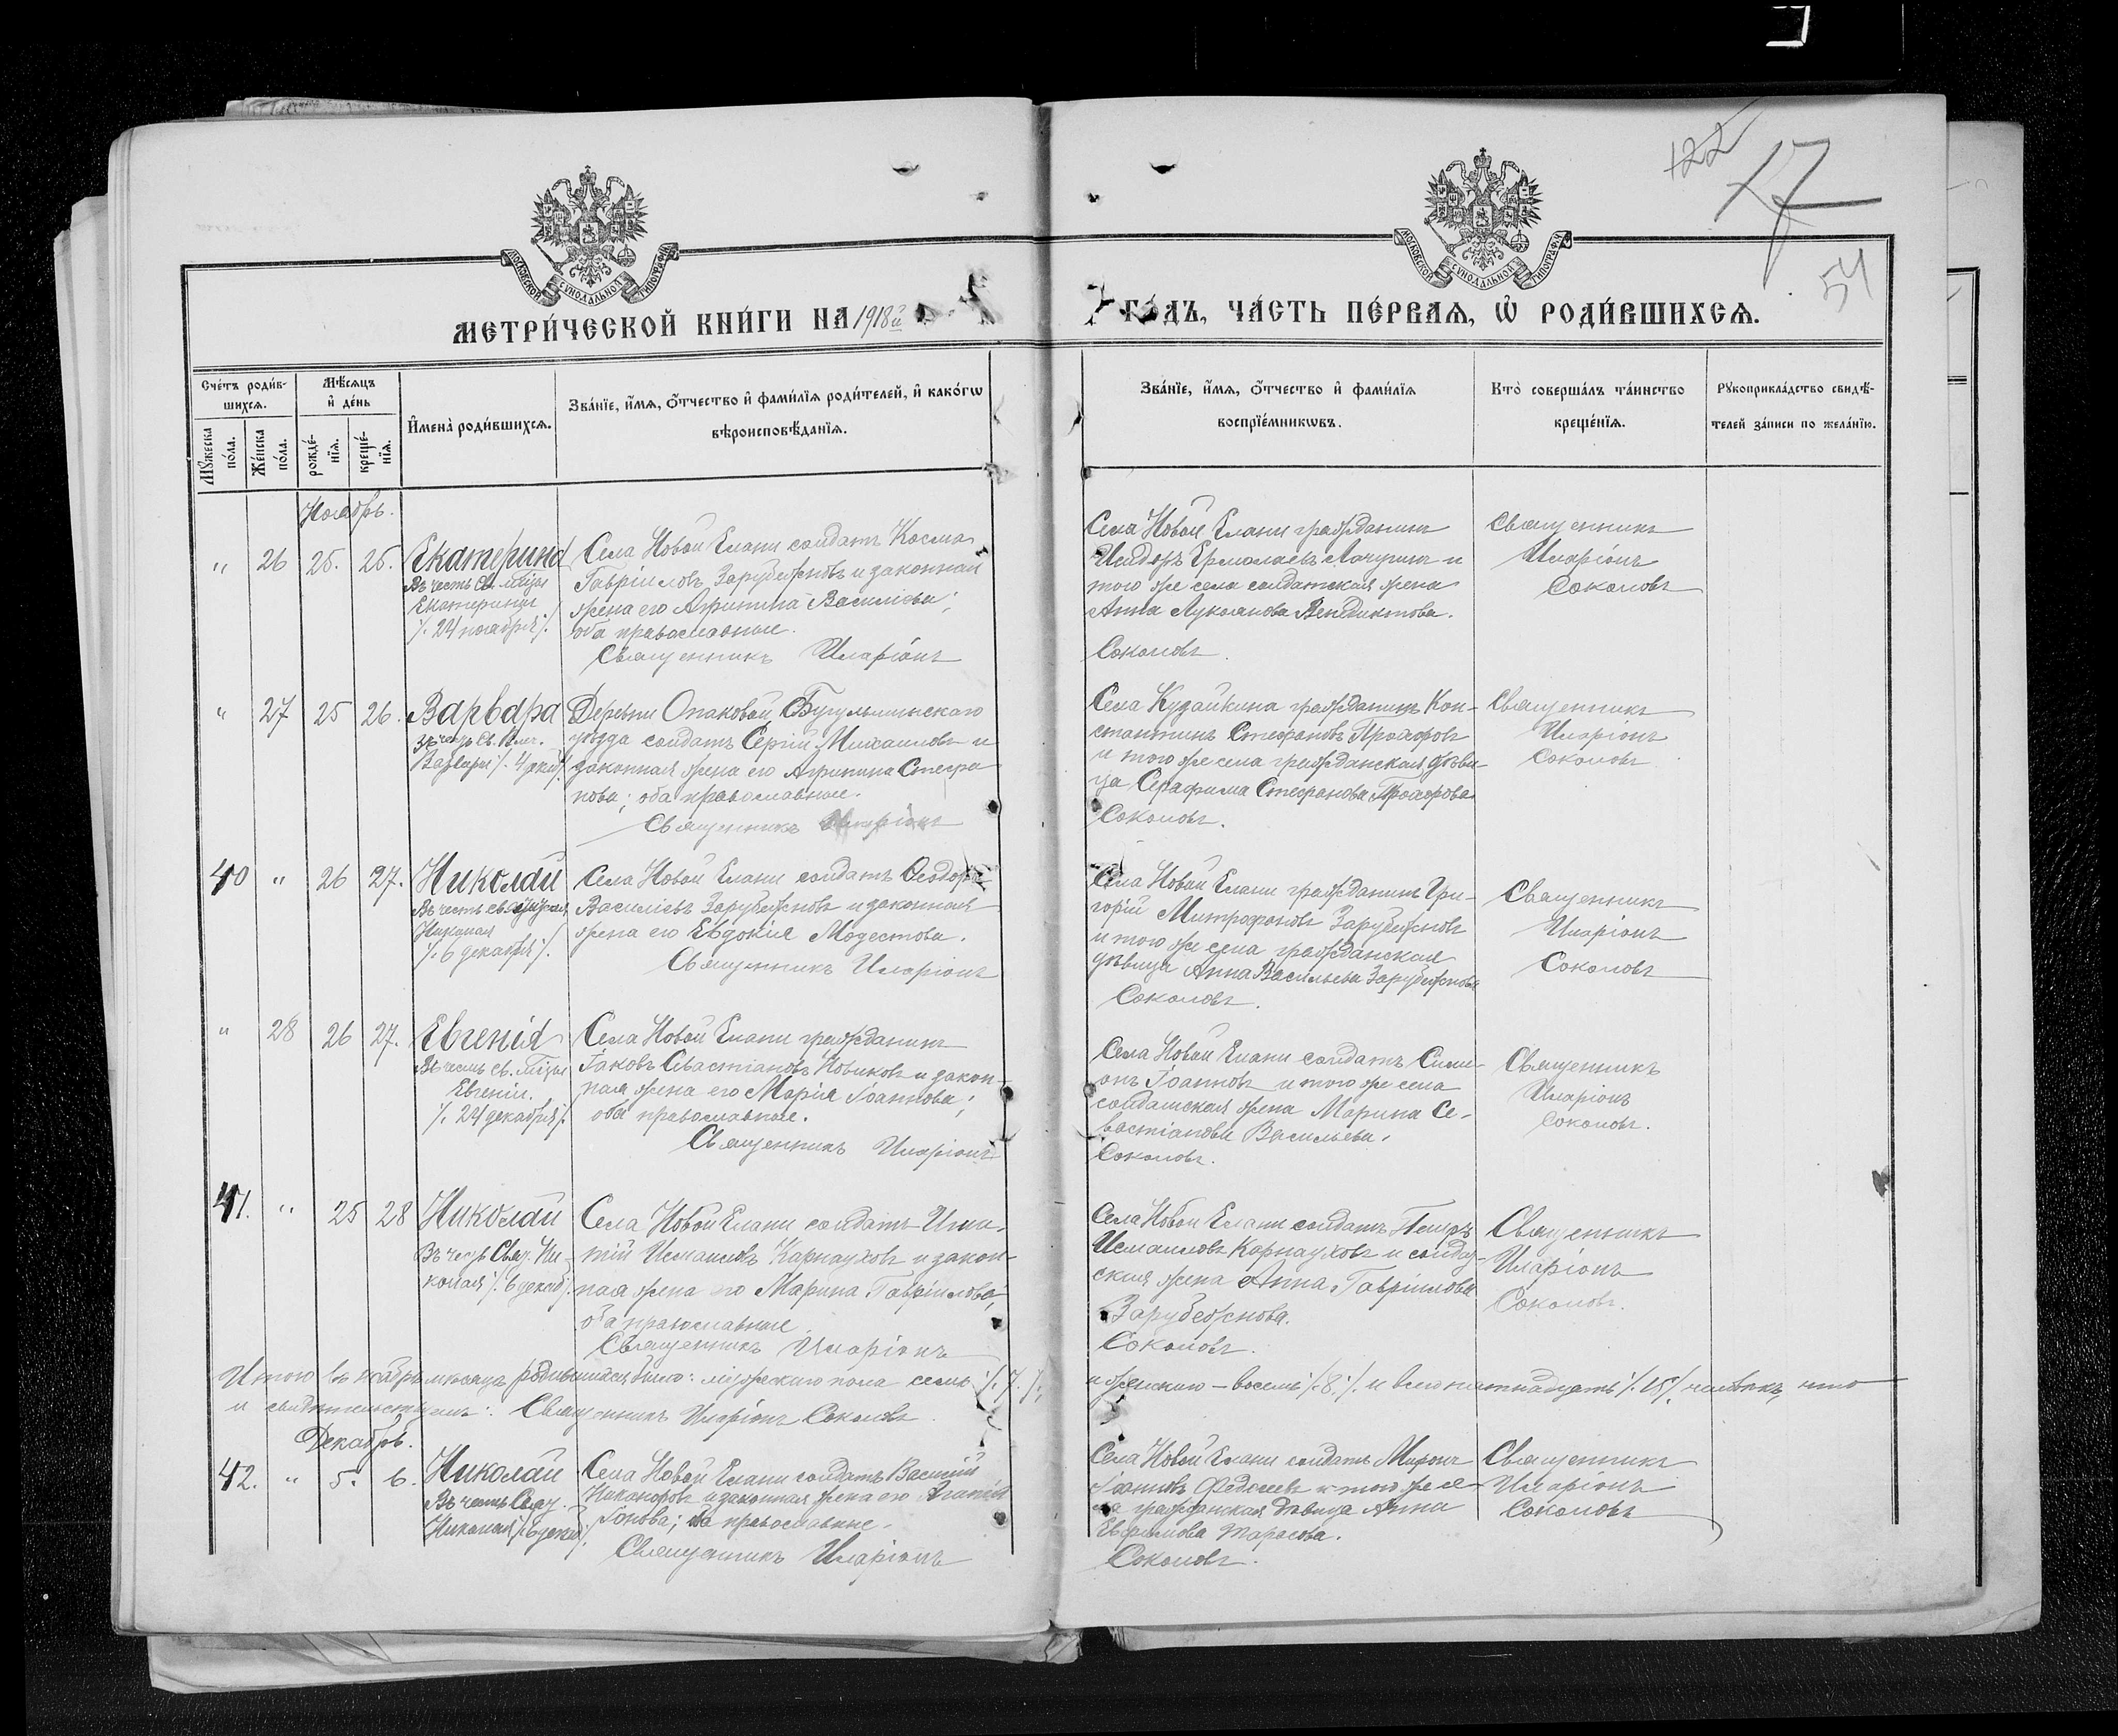 122
17
54
МОСКОВСКОЙ СѴНОДАЛЬНОЙ ТИПОГРАФІИ
МОСКОВСКОЙ СѴНОДАЛЬНОЙ ТИПОГРАФІИ
МЕТРИ́ЧЕСКОЙ КНИ́ГИ НА 1918й
ГО́ДЪ, ЧА́СТЬ ПЕ́РВАѦ, Ѡ҆ РОДИ́ВШИХСѦ.
Сче́тъ роди́в-
шихсѧ.
Мѣ́сѧцъ
и҆ де́нь
Мꙋ́жеска
по́ла.
Же́нска
по́ла.
рожде́-
нїѧ.
креще́-
нїѧ.
И҆мена̀ роди́вшихсѧ.
Зва́нїе, и҆́мѧ, ѻ҆́тчество и҆ фами́лїѧ роди́телей, и҆ како́гѡ
вѣроисповѣ́данїѧ.
Зва́нїе, и҆́мѧ, ѻ҆́тчество и҆ фами́лїѧ
воспрїе́мникѡвъ.
Кто̀ соверша́лъ та́инство
креще́нїѧ.
Рꙋкоприкла́дство свидѣ́-
телей за́писи по жела́нїю.
Ноябрь.
" 26 25. 25. Екатерина
Въ честь Св. мц̃цы
Екатерины
/. 24 ноября /.
Села Новой Елани солдатъ Косма
Гавріиловъ Зарубежновъ и законная
жена его Агрипина Василіева;
оба православные.
Священникъ Иларіонъ
Села Новой Елани гражданинъ
Исидоръ Ермолаевъ Лачугинъ и
того же села солдатская жена
Анна Лукіанова Венедиктова.
Соколовъ.
Священникъ
Иларіонъ
Соколовъ
" 27 25 26. Варвара
въ честь Св. Влмч.
Варвары /. 4 дек /.
Деревни Опаковой, Бугульминскаго
уѣзда солдатъ Сергій Михаиловъ и
законная жена его Агрипина Стефа
нова; оба православные.
Священникъ Иларіонъ
Села Кузайкина гражданинъ Кон-
стантинъ Стефановъ Прохоровъ
и того же села гражданская дѣви-
ца Серафима Стефанова Прохорова
Соколовъ.
Священникъ
Иларіонъ
Соколовъ
40 " 26 27. Николай
Въ честь св.
Николая
/. 6 декабря /.
Села Новой Елани солдатъ Ѳеодоръ
Василіевъ Зарубежновъ и законная
жена его Евдокія Модестова.
Священникъ Иларіонъ
Села Новой Елани гражданинъ Гри-
горій Митрофановъ Зарубежновъ
и того же села гражданская
дѣвица Анна Васильева Зарубежнова
Соколовъ.
Священникъ
Иларіонъ
Соколовъ
" 28 26 27. Евгенія
Въ честь св. мц̃цы
Евгеніи.
/. 24 декабря /.
Села Новой Елани гражданинъ
Іаковъ Севастіановъ Новиковъ и закон-
ная жена его Марія Іоаннова;
оба православные.
Священникъ Иларіонъ
Села Новой Елани солдатъ Симе-
онъ Іоанновъ и того же села
солдатская жена Марина Се-
вастіанова Васильева.
Соколовъ.
Священникъ
Иларіонъ
Соколовъ.
41. " 25 28 Николай
Въ честь Свят. Ни-
колая /. 6 декаб /.
Села Новой Елани солдатъ Игна-
тій Исмаиловъ Карнауховъ и закон-
ная жена его Марина Гавріилова,
оба православные
Священникъ Иларіонъ
Села Новой Елани солдатъ Петръ
Исмаиловъ Карнауховъ и солдат-
ская жена Анна Гавріилова
Зарубежнова.
Соколовъ.
Священникъ
Иларіонъ
Соколовъ.
Итого въ ноябрѣ мѣсяцѣ родившихся было: мужескаго пола семь /. 7. /.
и женскаго – восемь /. 8. /. и всего пятнадцать /. 15 /. человѣкъ, что
и свидѣтельствуемъ: Священникъ Иларіонъ Соколовъ.
Декабрь.
42. " 5. 6. Николай
Въ честь Свят.
Николая /. 6 декаб /.
Села Новой Елани солдатъ Василій
Никаноровъ и законная жена его Агапія
Іонова; оба православные.
Священникъ Иларіонъ
Села Новой Елани солдатъ Миронъ
Іоанновъ Ѳедосеевъ и того же се-
ла гражданская дѣвица Анна
Евфимова Тарасова.
Соколовъ.
Священникъ
Иларіонъ
Соколовъ